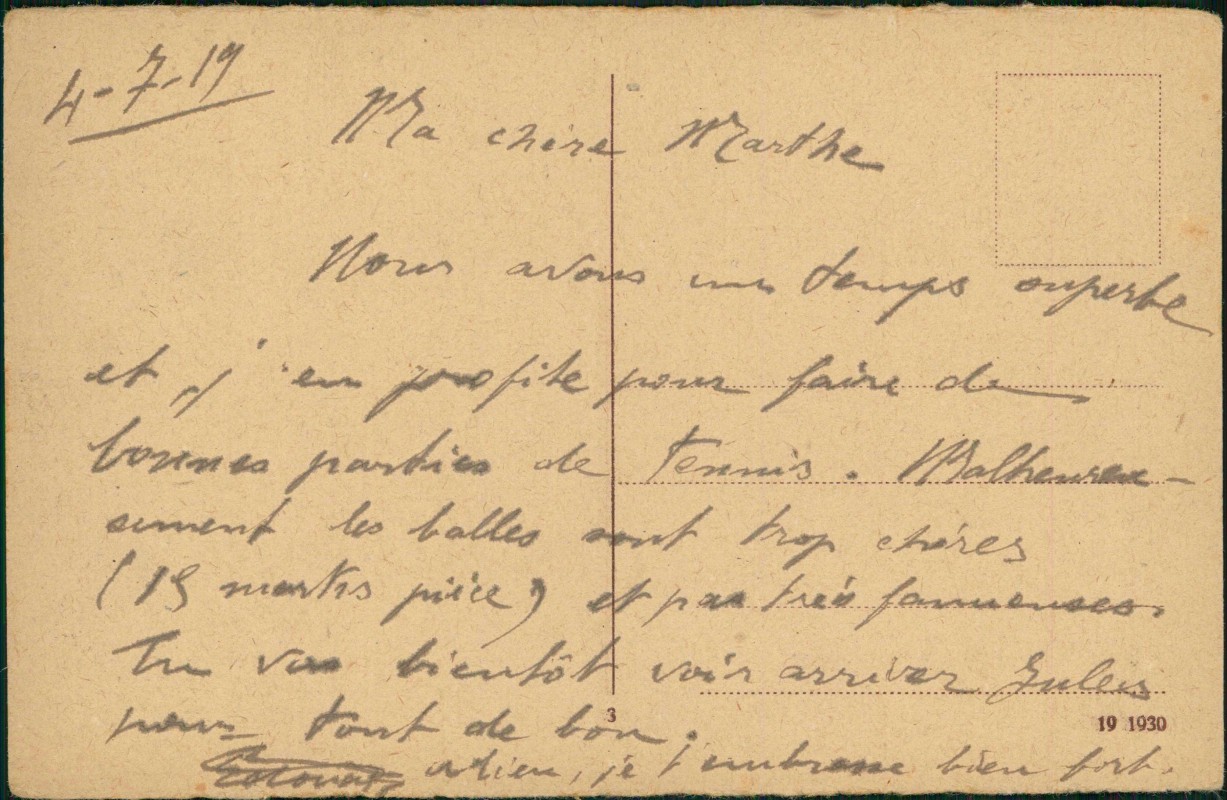 4-7-19
Ma chère Marthe
Nous avons un temps superbe
et j'en profite pour faire de
bonnes parties de Tennis. Malheureu-
sement les balles sont trop chères
(15 marks pièce) et pas très fameuses.
Tu vas bientôt voir arriver Jules
pour tout de bon.
Adieu, je t'embrasse bien fort.
3
19 1930